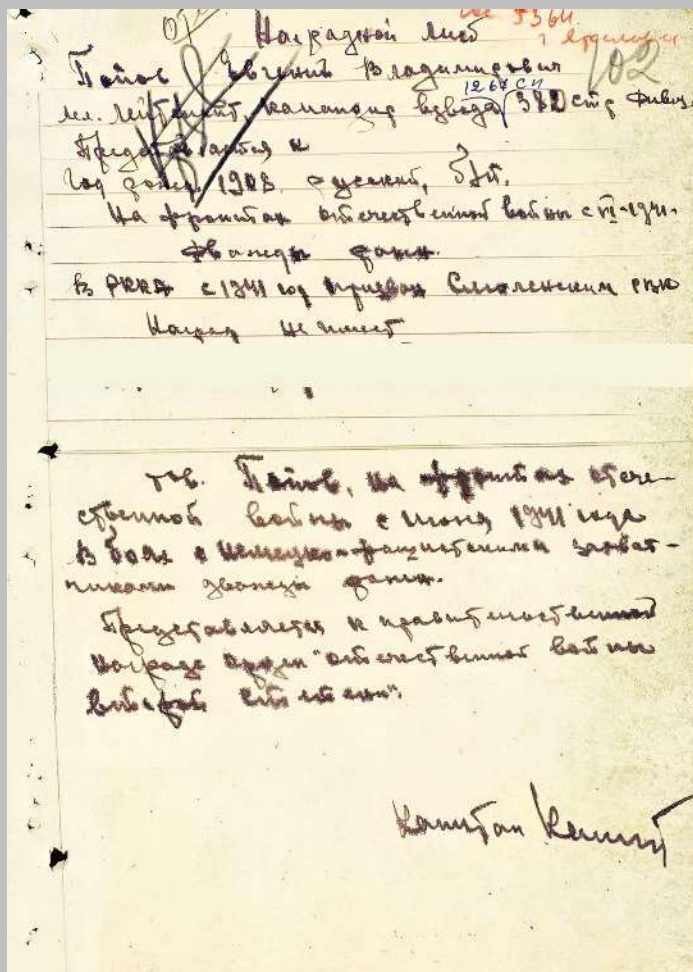 Наградной лист
Попов Евгений Владимирович
1267 СП
мл. лейтенант, командир взвода 382 стр дивиз.
102
Представляется к
Год рожд. 1908. русский,
На фронтах отечественной войны с VI-1941.
дважды ранен.
В РККА с 1941 год призван Смоленским РВК
Наград не имеет
тов. Попов, на фронтах отече-
ственной войны с июня 1941 года
В боях с немецко-фашистскими захват-
чиками дважды ранен.
Представляется к правительственной
награде орден "отечественной войны
второй степени".
Капитан